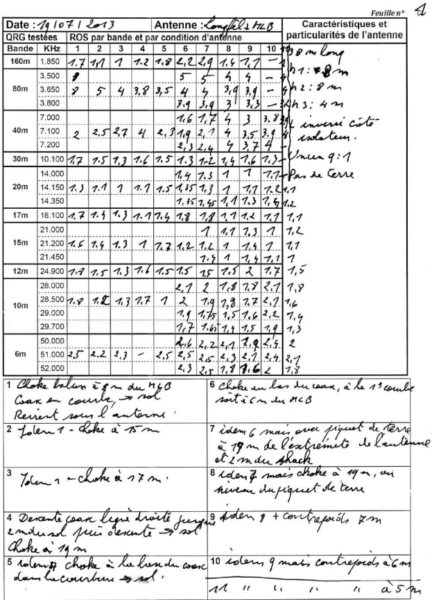 Feuille n° 4
Date : 19/07/2013 Antenne : Longfil + MLB Caractéristiques et particularités de l'antenne
QRG testées ROS par bande et par condition d'antenne
Bande KHz 1 2 3 4 5 6 7 8 9 10
38 m long
160m 1.850 1.7 1.1 1 1.2 1.8 2.2 2.9 1.4 1.7 -
h1 : 8 m
3.500 8 5 5 4 4 -
80m 3.650 8 5 4 3.8 3.5 4 4 3.9 3.9 -
h2 : 8 m
3.800 3.9 3.9 3 3.3
h3 : 4 m
7.000 1.6 1.7 4 3 3.8
inversé côté
40m 7.100 2 2.5 2.7 4 2.3 1.9 2.1 4 3.5 3.9
isolateur.
7.200 2.3 2.4 4 3.7 4
Unun 9:1
30m 10.100 1.7 1.5 1.3 1.6 1.5 1.3 1.2 1.4 1.6 1.3
14.000 1.4 1.3 1 1 1.1
Pas de terre
20m 14.150 1.3 1.1 1 1.1 1.5 1.35 1.3 1 1.1 1.2 1.1
14.350 1.35 1.45 1.1 1.3 1.4 1.2
17m 18.100 1.7 1.4 1.3 1.1 1.4 1.8 1.8 1.1 1.2 1.1 1.1
21.000 1 1.1 1.3 1 1.2
15m 21.200 1.6 1.4 1.3 1 1.7 1.2 1.2 1 1.4 1 1.1
21.450 1.4 1 1.4 1.1 1
12m 24.900 1.8 1.5 1.3 1.6 1.5 1.5 1.5 1.5 2 1.7 1.5
28.000 2.1 2 1.8 1.8 2.1 1.8
10m 28.500 1.8 1.2 1.3 1.7 1 2 1.9 1.8 1.7 2.1 1.6
29.000 1.9 1.75 1.5 1.6 2.2 1.4
29.700 1.7 1.65 1.4 1.5 1.9 1.3
50.000 2.6 2.2 2.1 2.9 2.4 2
6m 51.000 2.5 2.2 2.3 - 2.5 2.5 2.5 2.3 2.1 2.4 2.1
52.000 2.3 2.5 1.8 1.6 2 1.8
1 Choke balun à 8 m du MLB
Coax en courbe → sol
Revient sous l'antenne.
6 choke en bas du coax, à la 1ère courbe
soit à 6 m du MLB
2 Idem 1 - choke à 15 m
7 idem 6 mais avec piquet de terre
à 19 m de l'extrémité de l'antenne
et 2 m du shack
3 Idem 1 - choke à 17 m.
8 idem 7 mais choke à 19 m, au
niveau du piquet de terre
4 Descente coax ligne droite jusque
2 m du sol puis descente → sol
Choke à 19 m
9 idem 8 + contrepoids 7 m
5 idem 4 choke à la base du coax
dans la courbure → sol.
10 idem 9 mais contrepoids à 6 m
11 " " " " à 5 m